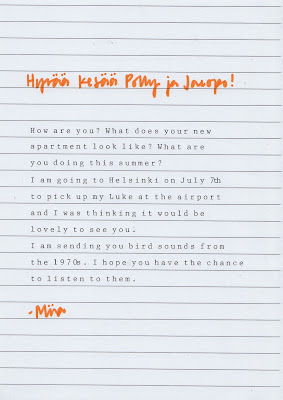 Hyvää kesää Polly ja Jacopo!
How are you? What does your new
apartment look like? What are
you doing this summer?
I am going to Helsinki on July 7th
to pick up my Luke at the airport
and I was thinking it would be
lovely to see you.
I am sending you bird sounds from
the 1970s. I hope you have the chance
to listen to them.
-Mira